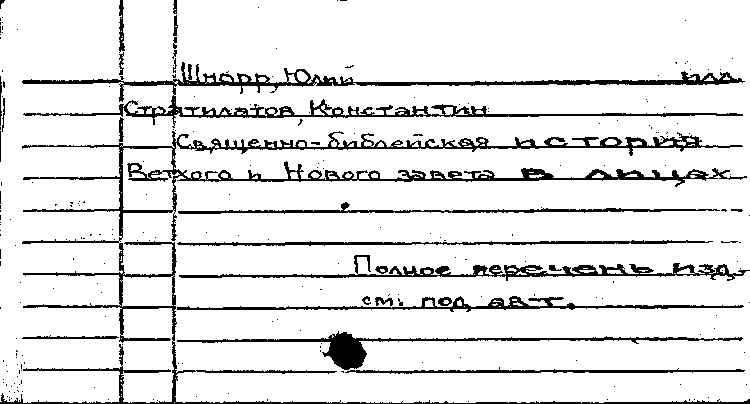 Шнорр, Юлий илл.
Стратилатов, Константин
Священно-библейская история
Ветхого и Нового завета в лицах
Полное перечень изд.
см. под авт.